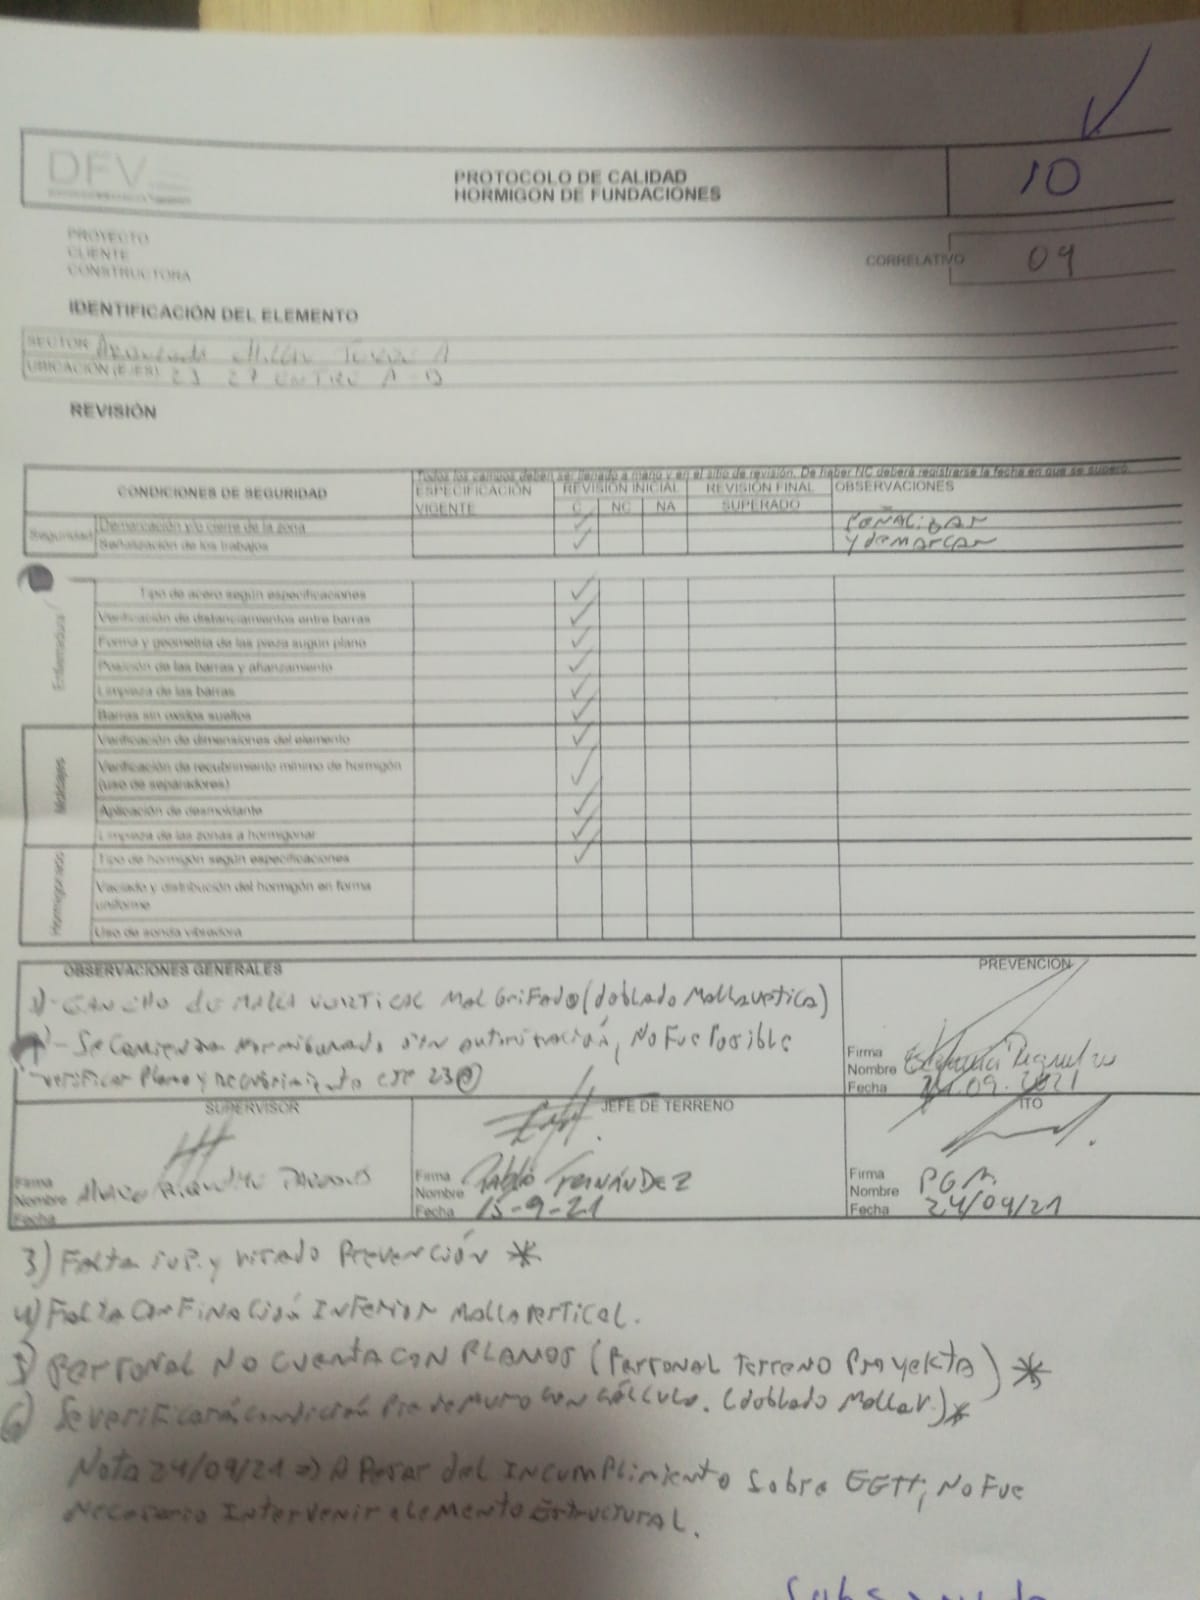 DFV
PROTOCOLO DE CALIDAD
HORMIGON DE FUNDACIONES
10
PROYECTO
CLIENTE
CONSTRUCTORA
CORRELATIVO 09
IDENTIFICACIÓN DEL ELEMENTO
SECTOR
UBICACIÓN (EJES) 23 27 ENTRE A-B
REVISIÓN
Todos los campos deben ser llenado a mano y en el sitio de revisión. De haber NC deberá registrarse la fecha en que se superó.
CONDICIONES DE SEGURIDAD
ESPECIFICACIÓN VIGENTE
REVISIÓN INICIAL
C NC NA
REVISIÓN FINAL
SUPERADO
OBSERVACIONES
Seguridad
Demarcación y/o cierre de la zona ✓ SEÑALIZAR
Señalización de los trabajos ✓ Y DEMARCAR
Enfierradura
Tipo de acero según especificaciones ✓
Verificación de distanciamientos entre barras ✓
Forma y geometría de las pieza sugún plano ✓
Posición de las barras y afianzamiento ✓
Limpieza de las barras ✓
Barras sin oxidos sueltos ✓
Moldajes
Verificación de dimensiones del elemento ✓
Verificación de recubrimiento mínimo de hormigón
(uso de separadores) ✓
Aplicación de desmoldante ✓
Limpieza de las zonas a hormigonar ✓
Hormigonado
Tipo de hormigón según especificaciones ✓
Vaciado y distribución del hormigón en forma
uniforme
Uso de sonda vibradora
OBSERVACIONES GENERALES
- GANCHO DE MALLA VERTICAL MAL GRIFADO (doblado Malla vertical)
- Se comienza hormigonado sin autorización, No Fue Posible
verificar Plano y recubrimiento eje 23
PREVENCIÓN
Firma
Nombre
Fecha 24.09.2021
SUPERVISOR
Firma
Nombre
Fecha
JEFE DE TERRENO
Firma
Nombre Pablo FERNÁNDEZ
Fecha 15-9-21
ITO
Firma
Nombre P.G.M.
Fecha 24/09/21
3) Falta sup. y visado Prevención *
4) Falta confinación Inferior Malla vertical.
5) PERSONAL NO CUENTA CON PLANOS (Personal Terreno Proyekta) *
6) Se verificará condición Pie de muro con cálculo. (doblado Malla V.) *
Nota 24/09/21 => A Pesar del Incumplimiento Sobre EETT, No Fue
Necesario Intervenir elemento Estructural.